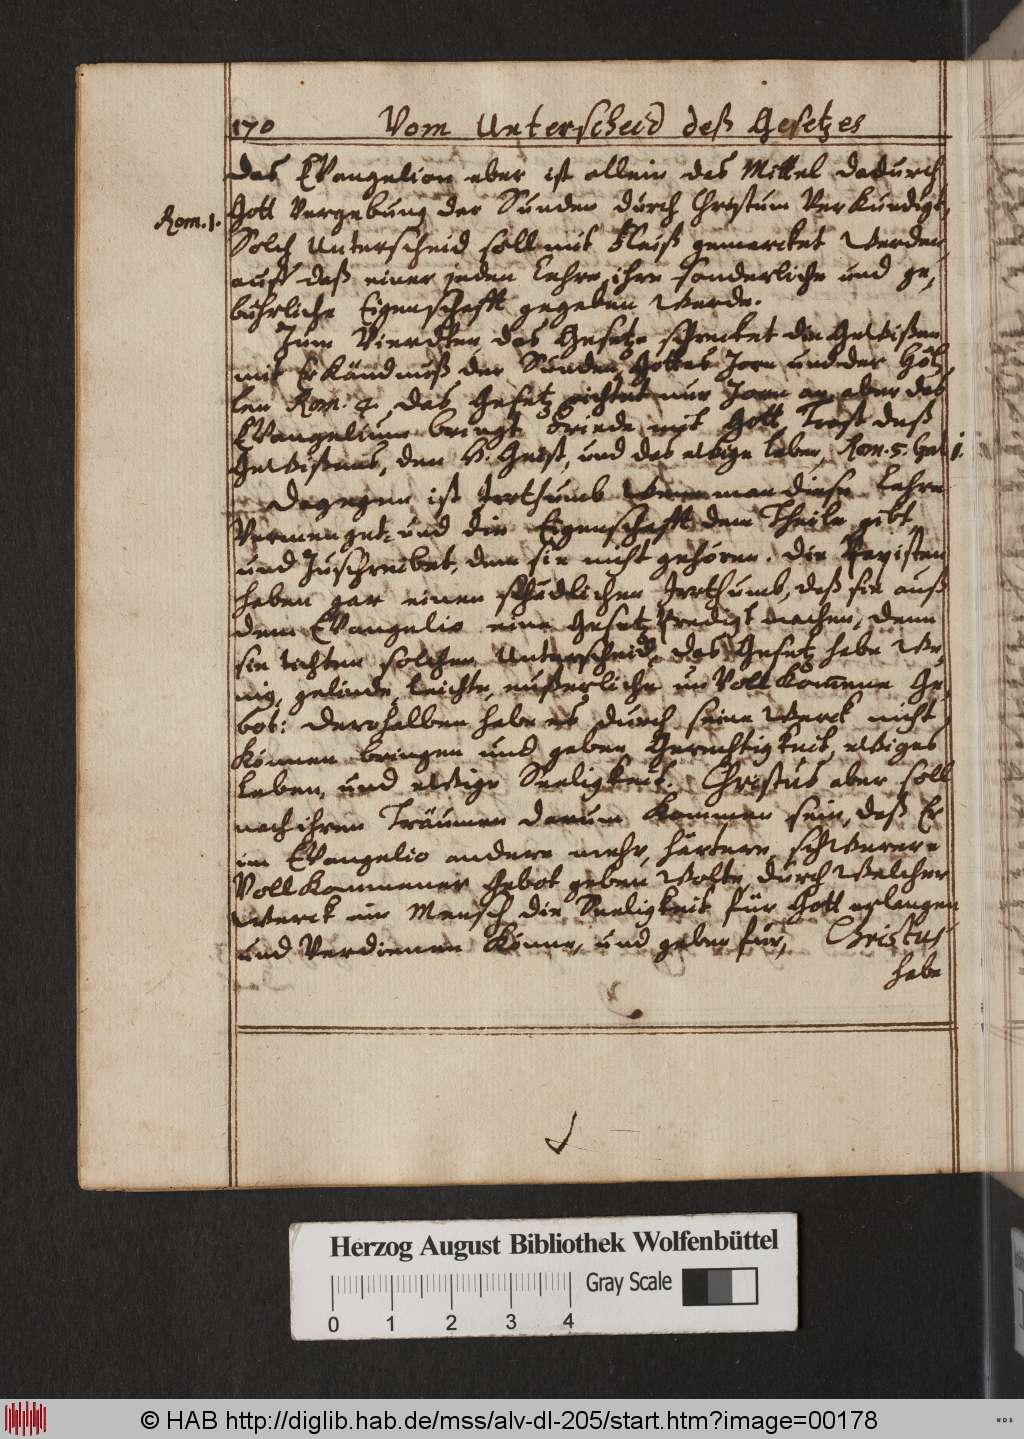 170 Vom Unterscheid deß Gesetzes
Das Evangelion aber ist allein das Mittel dadurch
Rom. 1.
Gott Vergebung der Sunden durch Christum Verkundigt,
Solch Unterscheid soll mit Fleiß gemercket werden,
auff daß einer jeden Lehre ihre sonderliche und ge,
bührliche Eigenschafft gegeben werde.
Zum Vierdten das Gesetz schrecket die Gewißen
mit Erkändnuß der Sunden, Gottes Zorn und der Höl,
len Rom. 4. das Gesetz richtet nur Zorn an, aber das
Evangelium bringt Friede mit Gott, Trost deß
Gewißens, den H. Geist, und das ewige leben, Rom. 5. Gal 1.
Dagegen ist Irrthumb wenn man diese Lehre
Vermenget und die Eigenschafft dem Theile gibt
und Zuschreibet, dem sie nicht gehören. Die Papisten
haben gar einen schädlichen Irrthumb, daß sie auß
dem Evangelio eine Gesetz Predigt machen, denn
sie tichten solchen Unterscheid, das Gesetz habe we,
nig, gelinde, leichte, eußerliche un Vollkom̄ene Ge,
bot: derohalben habe es durch seine Werck nicht
können bringen und geben Gerechtigkeit, ewiges
Leben, und ewige Seeligkeit. Christus aber soll
nach ihren Träumen darum kommen sein, daß Er
im Evangelio andere mehr, härtere, schwerere
Vollkommener Gebot geben wolte, durch welcher
Werck ein Mensch die Seeligkeit für Gott erlangen
und Verdienen könne, und geben für, Christus
habe
Herzog August Bibliothek Wolfenbüttel
Gray Scale
0 1 2 3 4
© HAB http://diglib.hab.de/mss/alv-dl-205/start.htm?image=00178